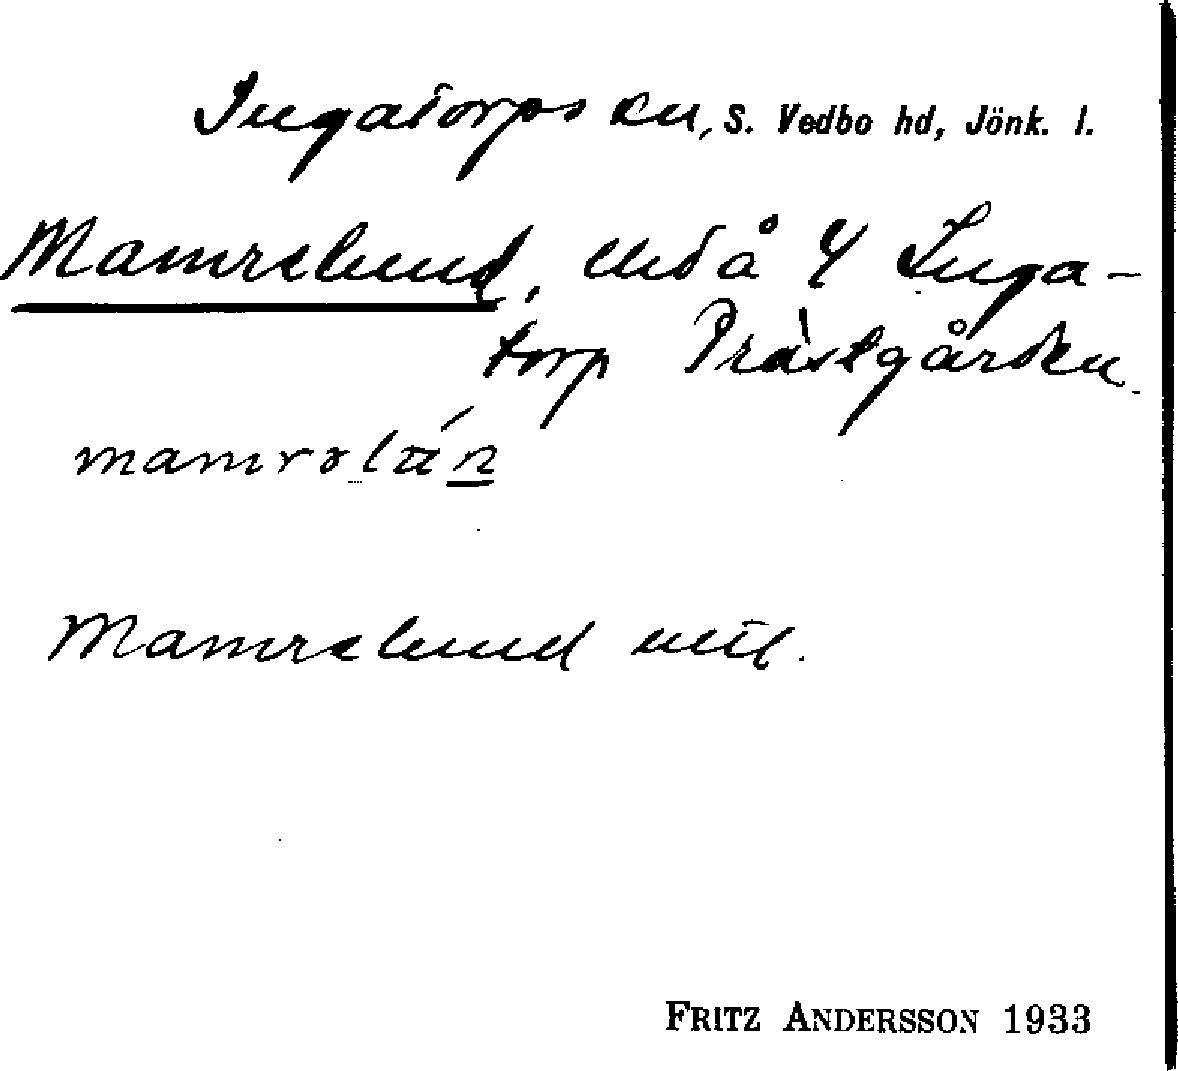 Ingatorps sn, S. Vedbo hd, Jönk. l.
Mamrelund, und å 4 Inga-
torp Prästgården.
mamrəlún
Mamrelund utt.
FRITZ ANDERSSON 1933